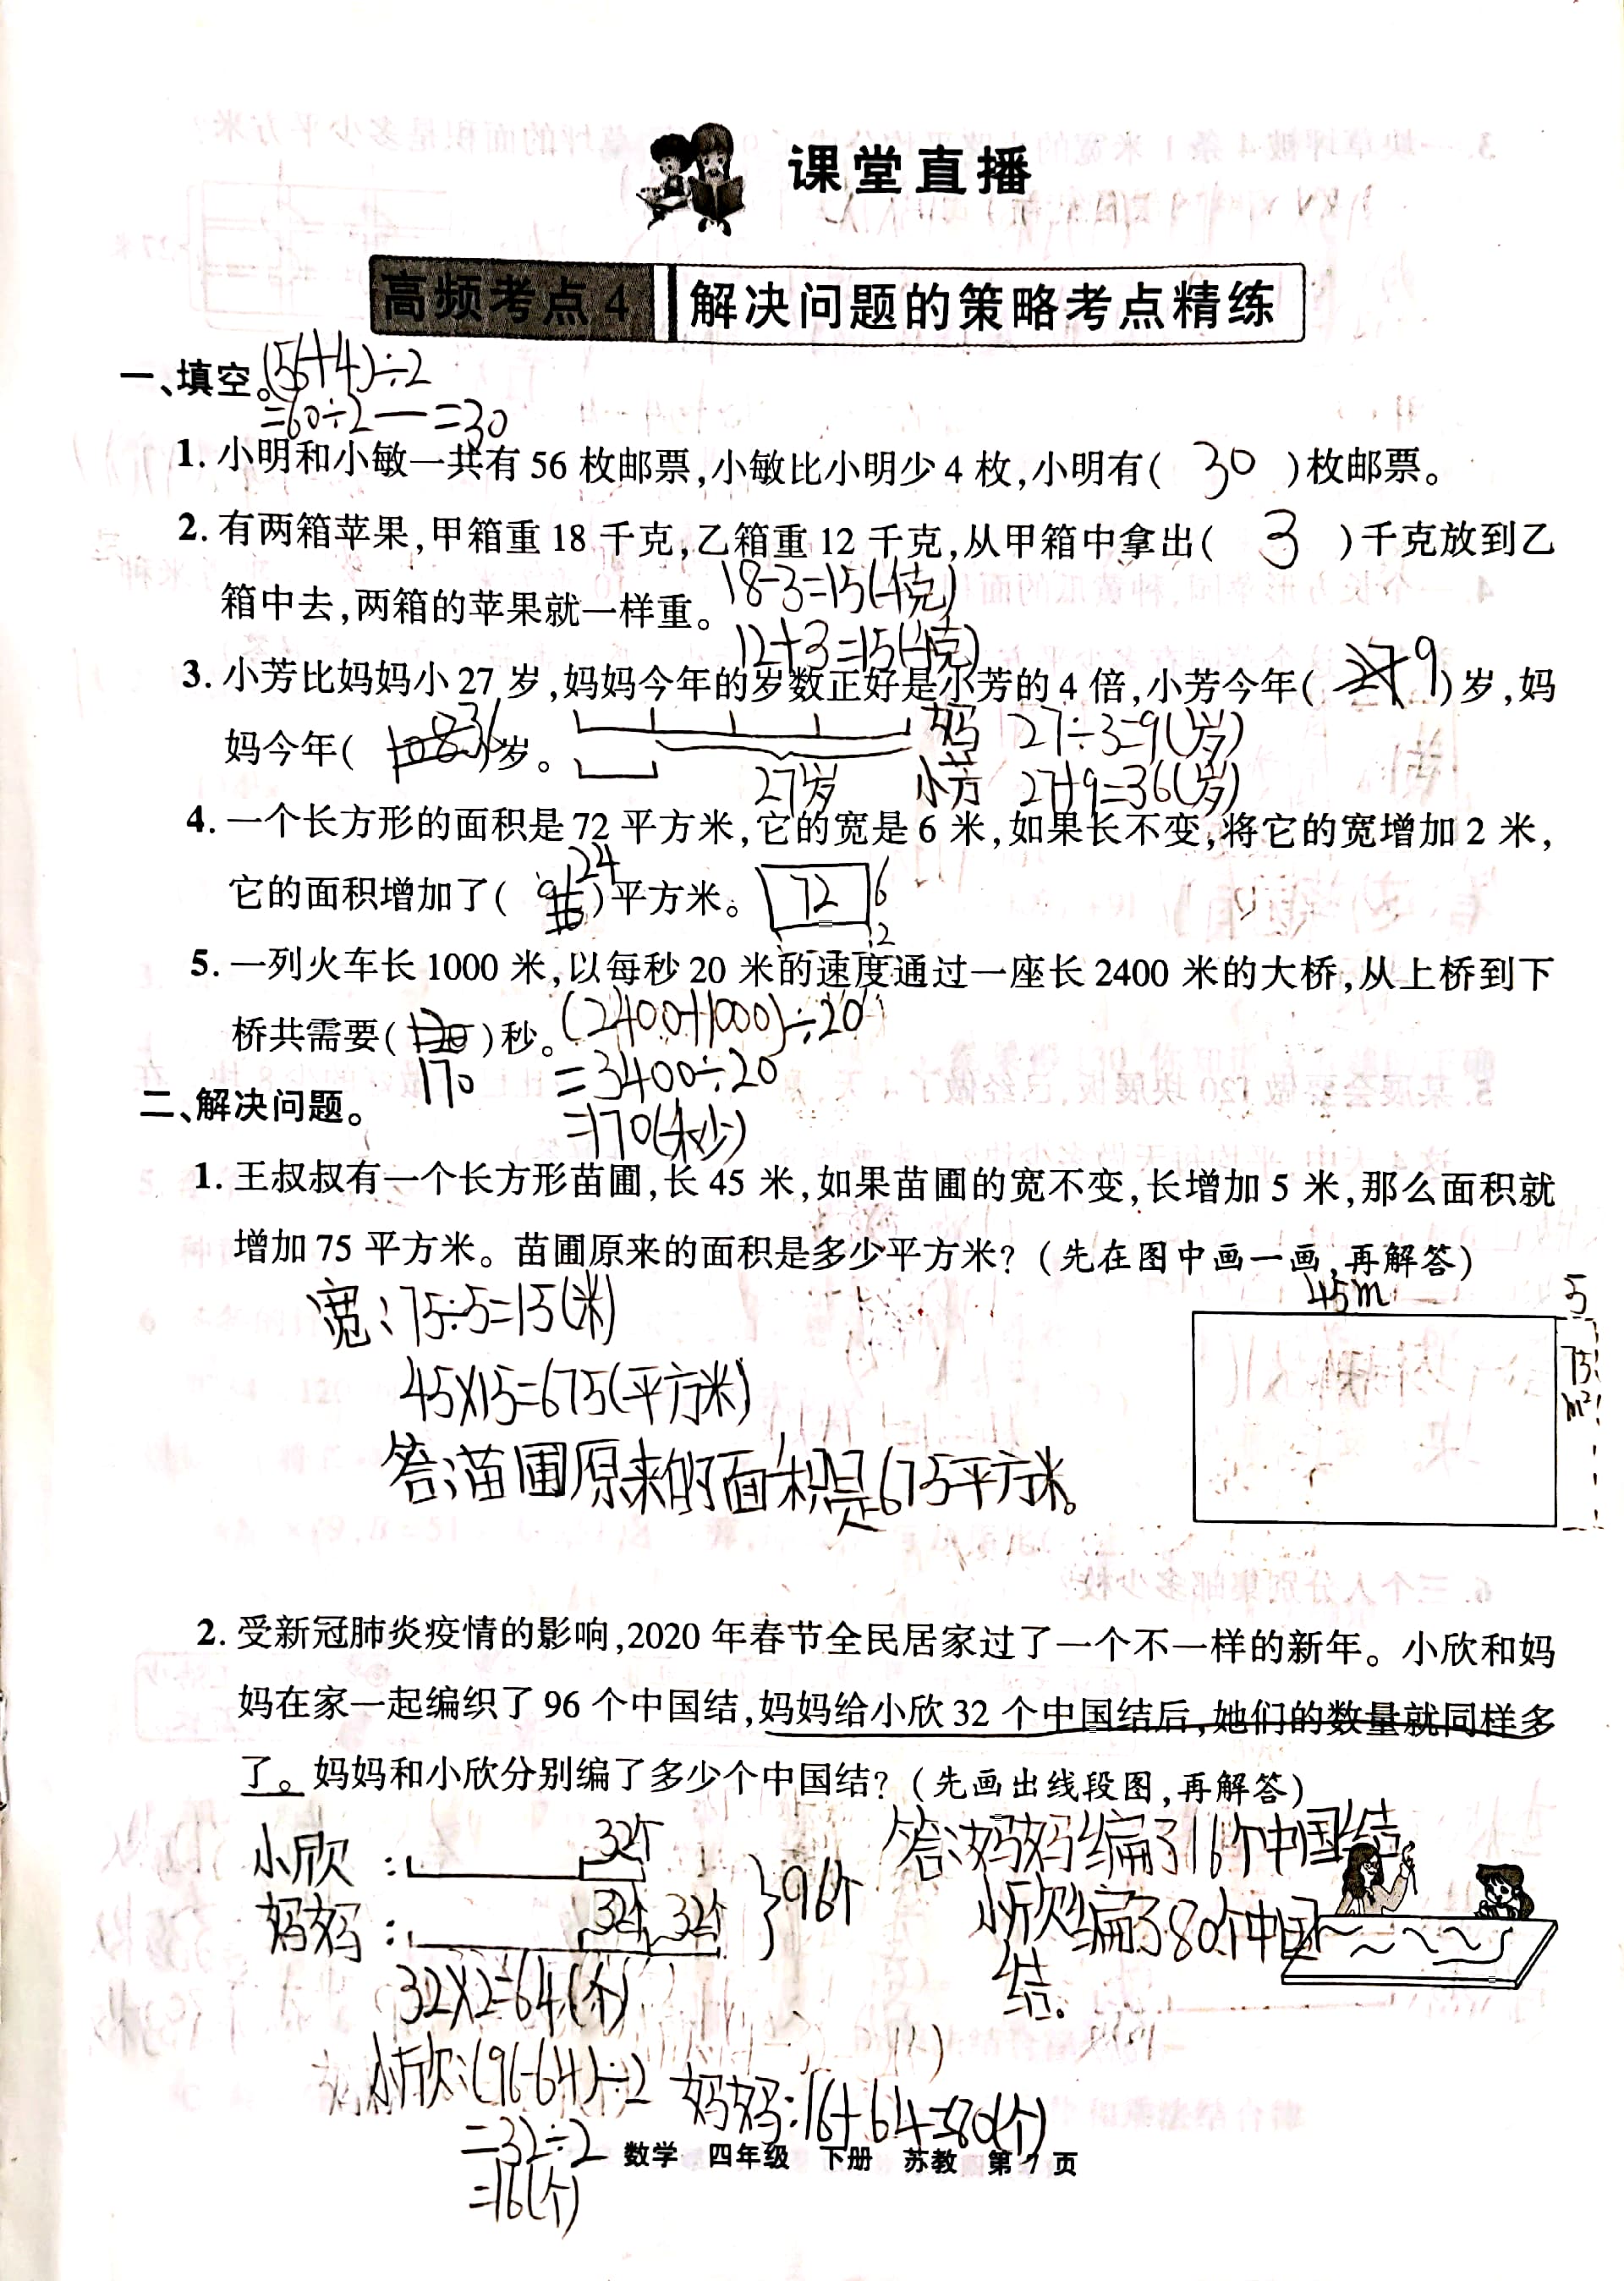 课堂直播
高频考点4 解决问题的策略考点精练
一、填空。(56+4)÷2
=60÷2 =30
1. 小明和小敏一共有 56 枚邮票,小敏比小明少 4 枚,小明有( 30 )枚邮票。
2. 有两箱苹果,甲箱重 18 千克,乙箱重 12 千克,从甲箱中拿出( 3 )千克放到乙
箱中去,两箱的苹果就一样重。 18-3=15(千克)
12+3=15(千克)
3. 小芳比妈妈小 27 岁,妈妈今年的岁数正好是小芳的 4 倍,小芳今年( 9 )岁,妈
妈今年( 36 )岁。 妈 27÷3=9(岁)
27岁 小芳 27+9=36(岁)
4. 一个长方形的面积是 72 平方米,它的宽是 6 米,如果长不变,将它的宽增加 2 米,
它的面积增加了( 24 )平方米。 72 6
2
5. 一列火车长 1000 米,以每秒 20 米的速度通过一座长 2400 米的大桥,从上桥到下
桥共需要( 120 )秒。 (2400+1000)÷20
170 =3400÷20
二、解决问题。
=170(秒)
1. 王叔叔有一个长方形苗圃,长 45 米,如果苗圃的宽不变,长增加 5 米,那么面积就
增加 75 平方米。苗圃原来的面积是多少平方米?(先在图中画一画,再解答)
宽:75÷5=15(米) 45m 5
45×15=675(平方米) 75
m²
答:苗圃原来的面积是675平方米。
2. 受新冠肺炎疫情的影响,2020 年春节全民居家过了一个不一样的新年。小欣和妈
妈在家一起编织了 96 个中国结,妈妈给小欣 32 个中国结后,她们的数量就同样多
了。妈妈和小欣分别编了多少个中国结?(先画出线段图,再解答)
小欣: 32个 答:妈妈编了16个中国结
妈妈: 32个 32个 96个 小欣编了80个中国
结。
32×2=64(个)
小欣:(96-64)÷2 妈妈:16+64=80(个)
=32÷2
=16(个)
数学 四年级 下册 苏教 第 7 页